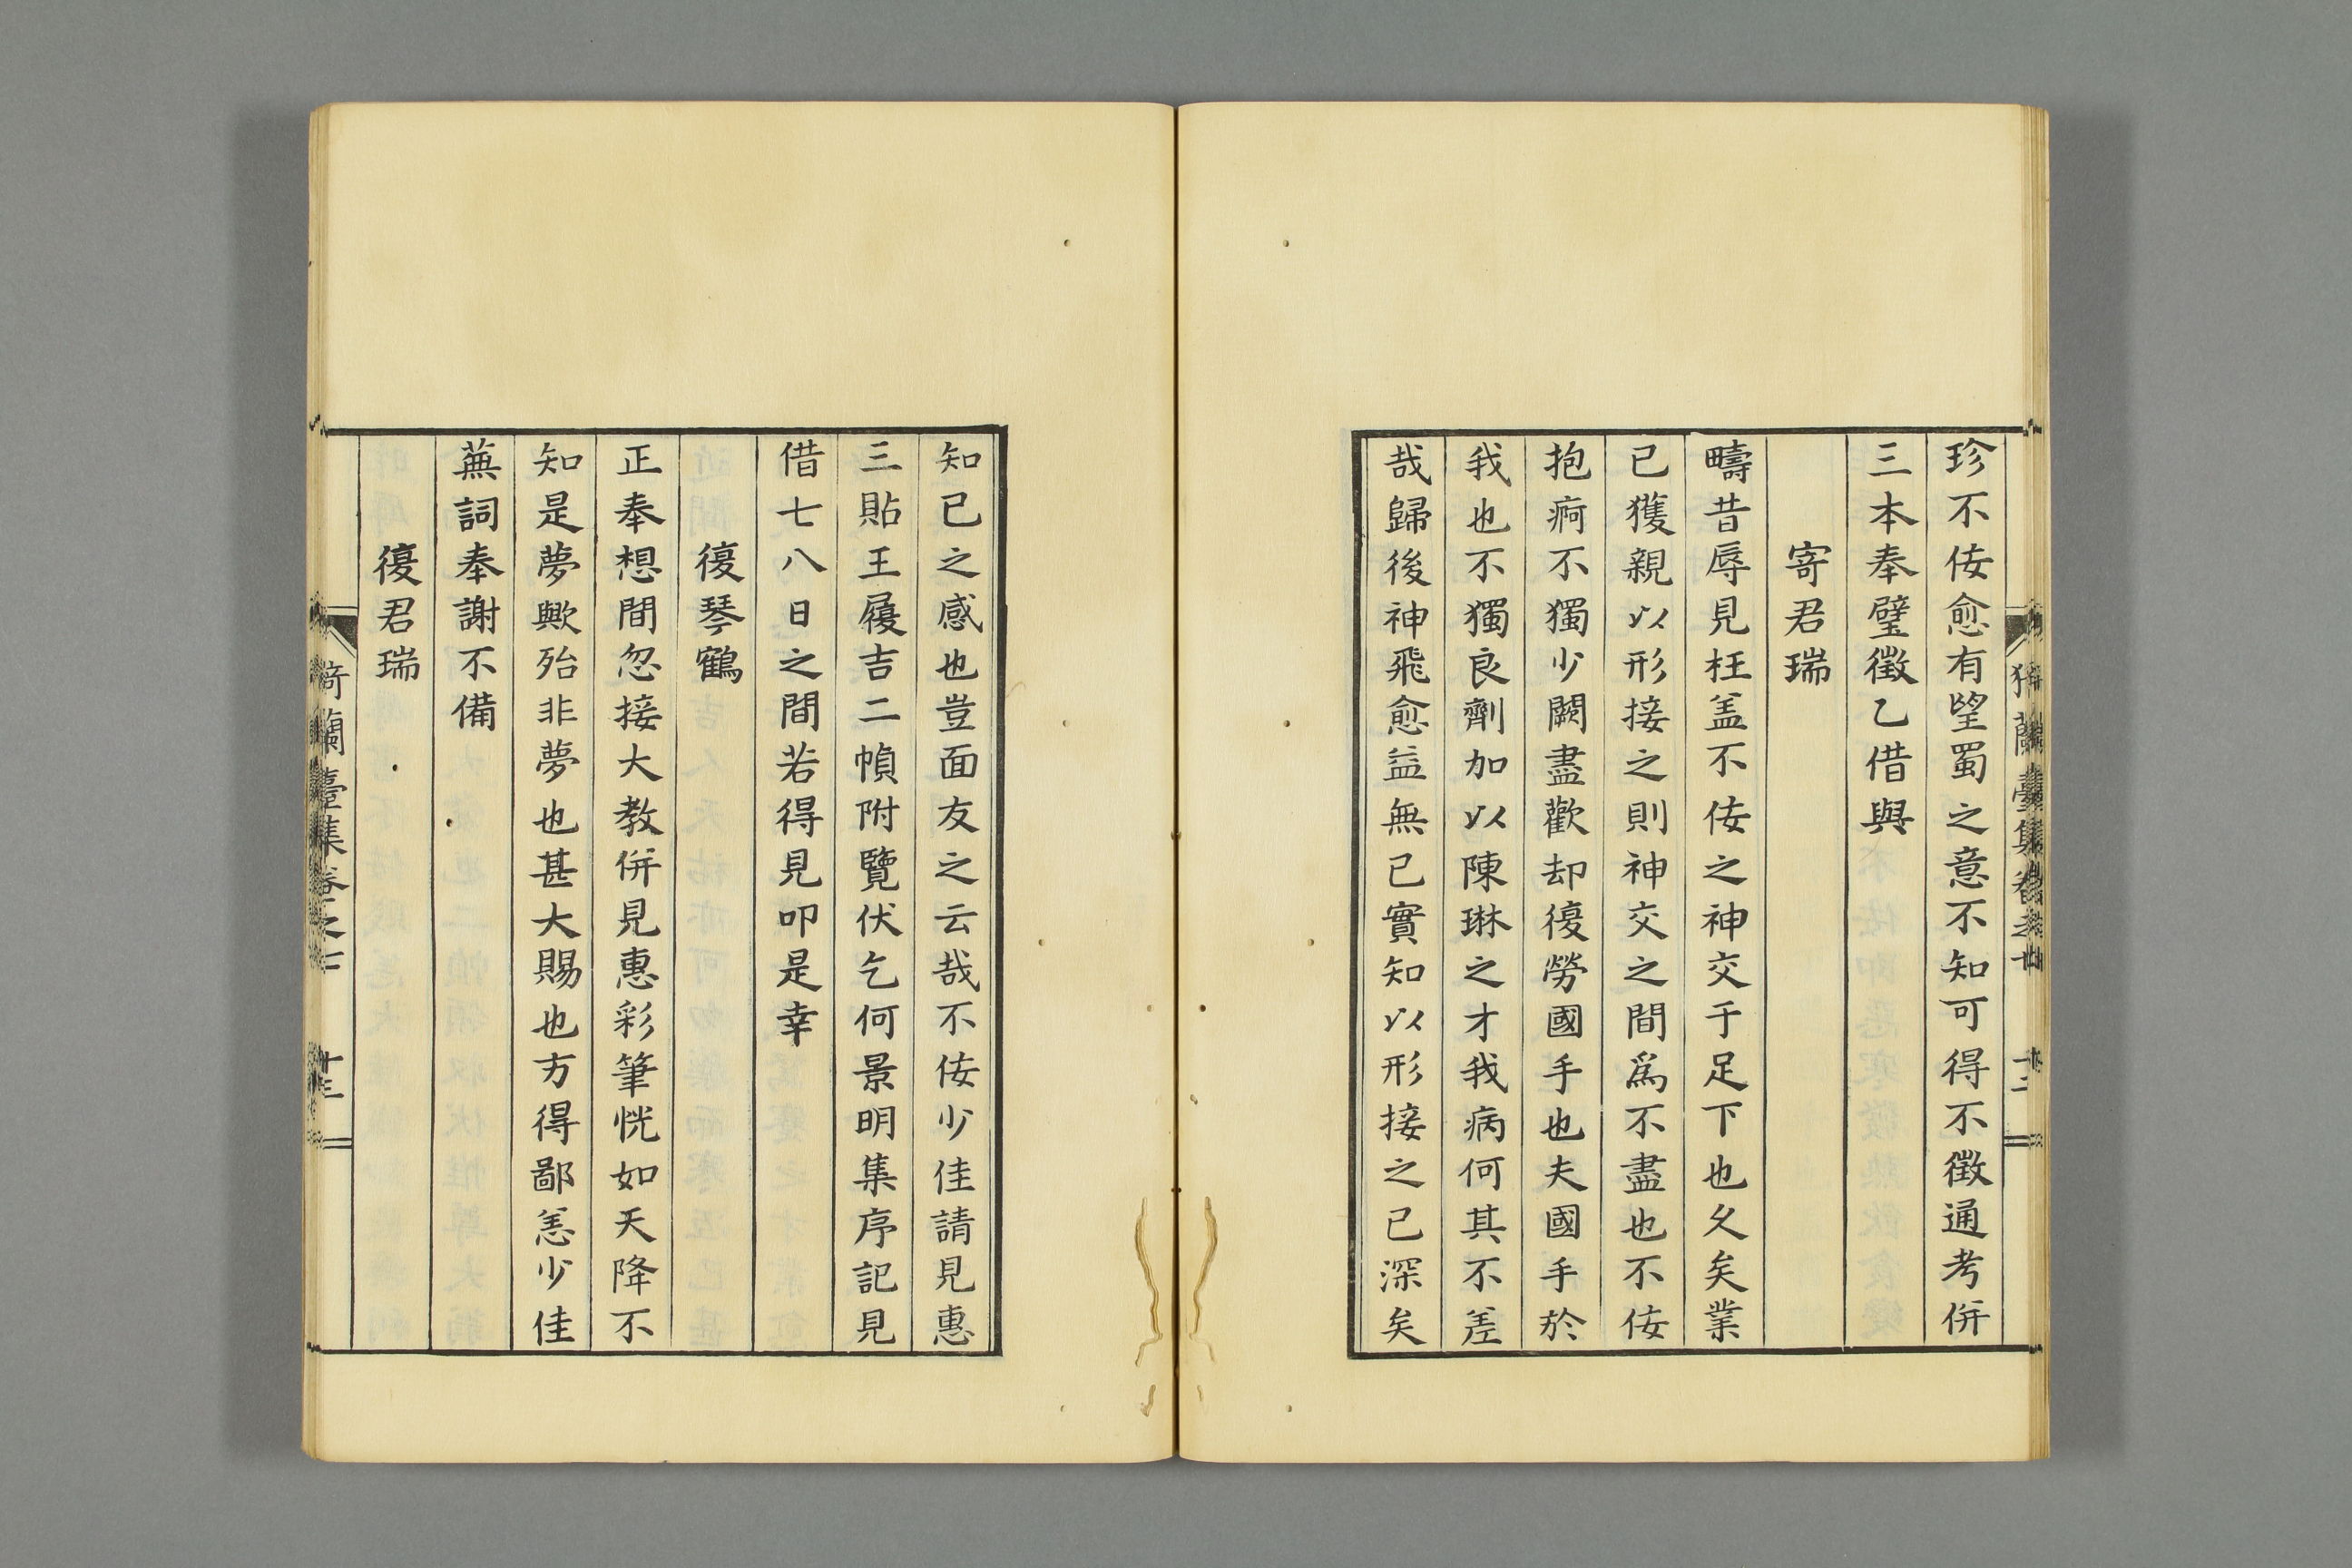 珍不佞愈有望蜀之意不知可得不徵通考併
三本奉璧徵乙借與
寄君瑞
疇昔辱見枉盖不佞之神交于足下也久矣業
已獲親以形接之則神交之間爲不盡也不佞
抱痾不獨少闕盡歡却復勞國手也夫國手於
我也不獨良劑加以陳琳之才我病何其不差
哉歸後神飛愈益無已實知以形接之已深矣
知已之感也豈面友之云哉不佞少佳請見惠
三貼王履吉二幀附覽伏乞何景明集序記見
借七八日之間若得見叩是幸
復琴鶴
正奉想間忽接大教併見惠彩筆恍如天降不
知是夢歟殆非夢也甚大賜也方得鄙恙少佳
蕪詞奉謝不備
復君瑞
猗蘭臺集卷之七 十三